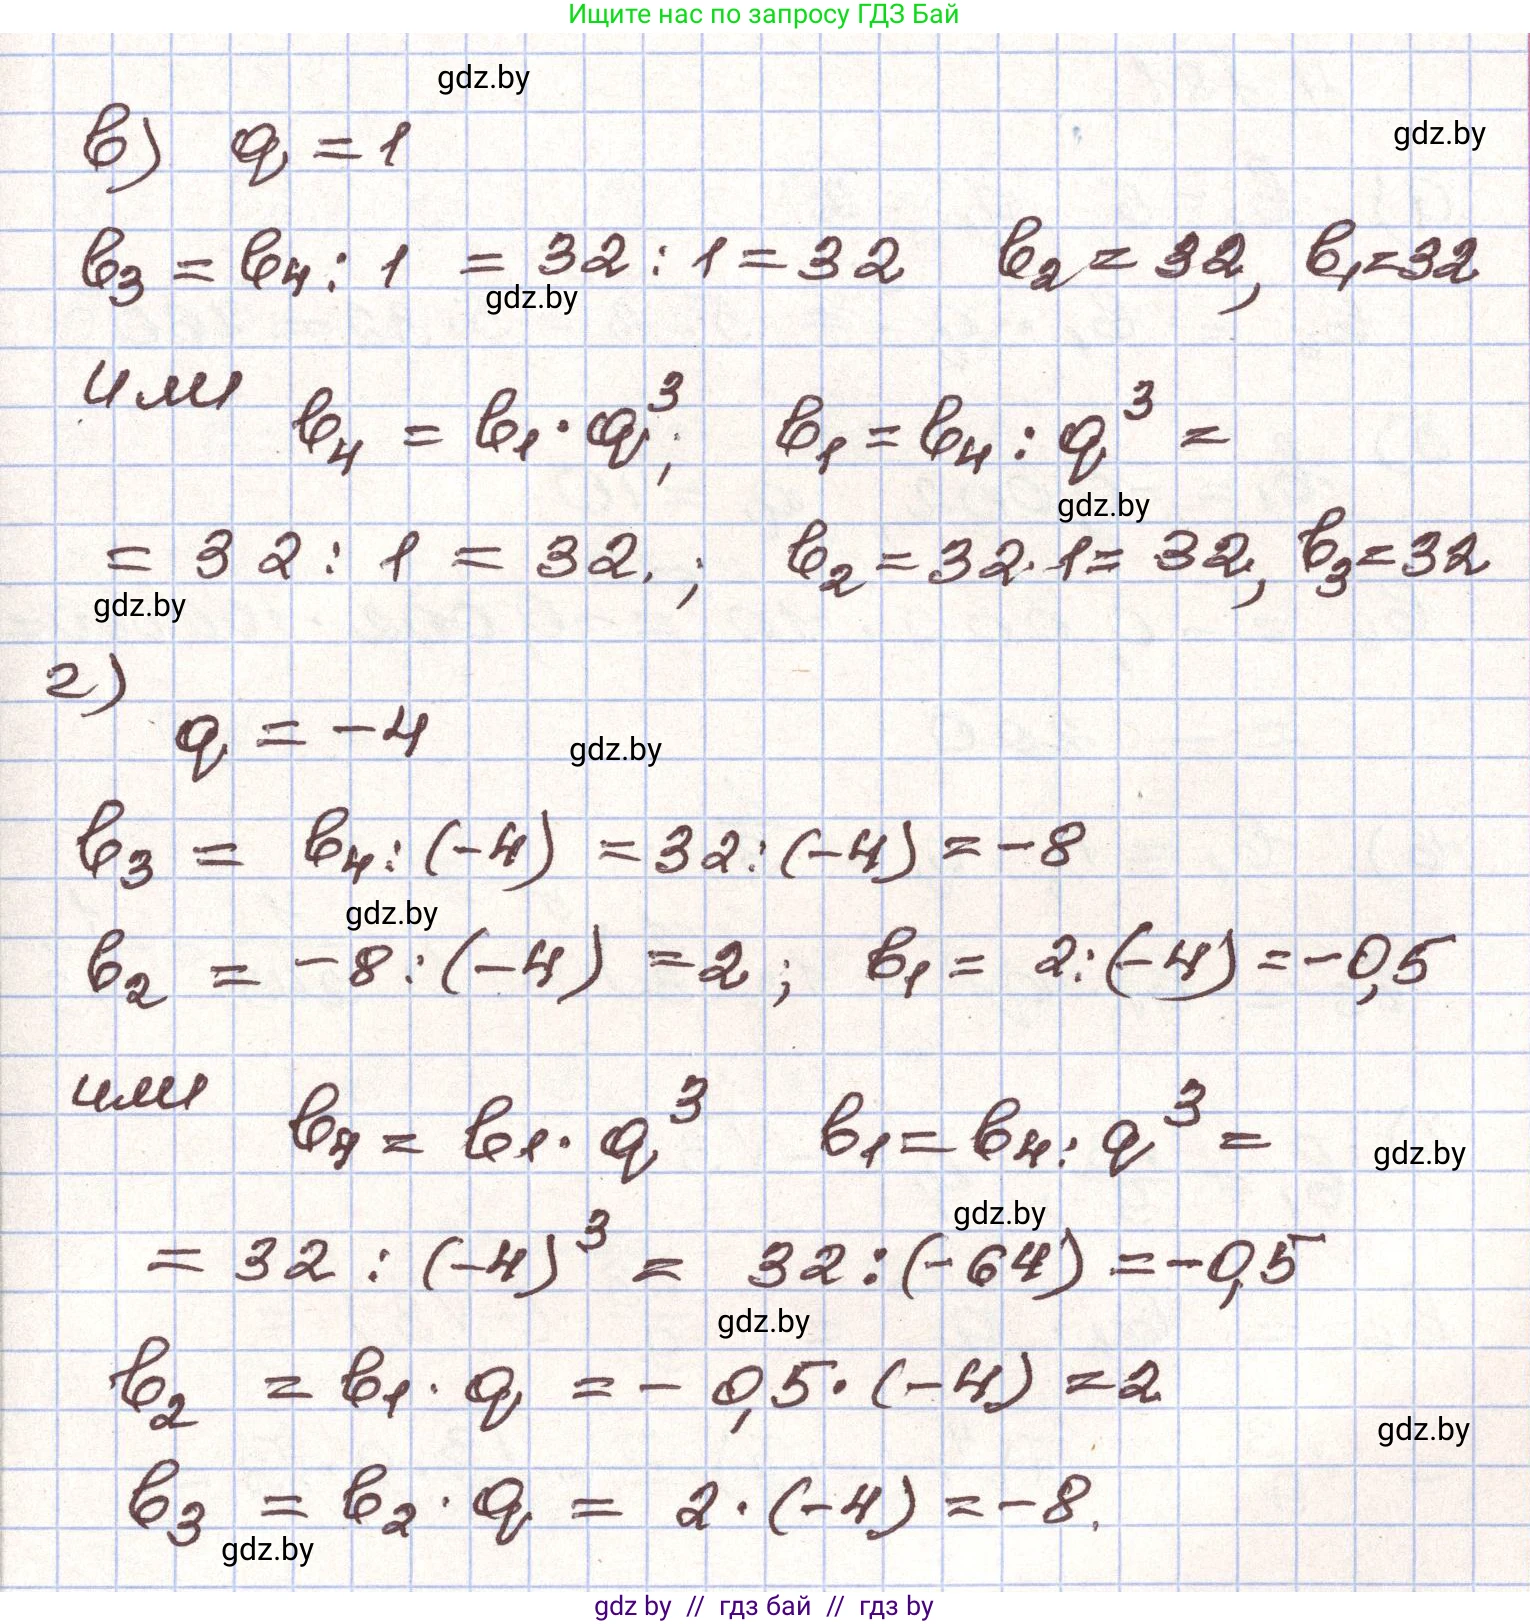 Ищите нас по запросу ГДЗ Бай
gdz.by
в) q = 1
gdz.by
b₃ = b₄ : 1 = 32 : 1 = 32 b₂ = 32, b₁ = 32
gdz.by
или b₄ = b₁ · q³; b₁ = b₄ : q³ =
gdz.by
= 32 : 1 = 32. ; b₂ = 32 · 1 = 32, b₃ = 32
gdz.by
г)
q = -4
gdz.by
b₃ = b₄ : (-4) = 32 : (-4) = -8
gdz.by
b₂ = -8 : (-4) = 2 ; b₁ = 2 : (-4) = -0,5
или b₄ = b₁ · q³ b₁ = b₄ : q³ =
gdz.by
gdz.by
= 32 : (-4)³ = 32 : (-64) = -0,5
gdz.by
b₂ = b₁ · q = -0,5 · (-4) = 2
gdz.by
b₃ = b₂ · q = 2 · (-4) = -8.
gdz.by
gdz by // гдз бай // гдз by